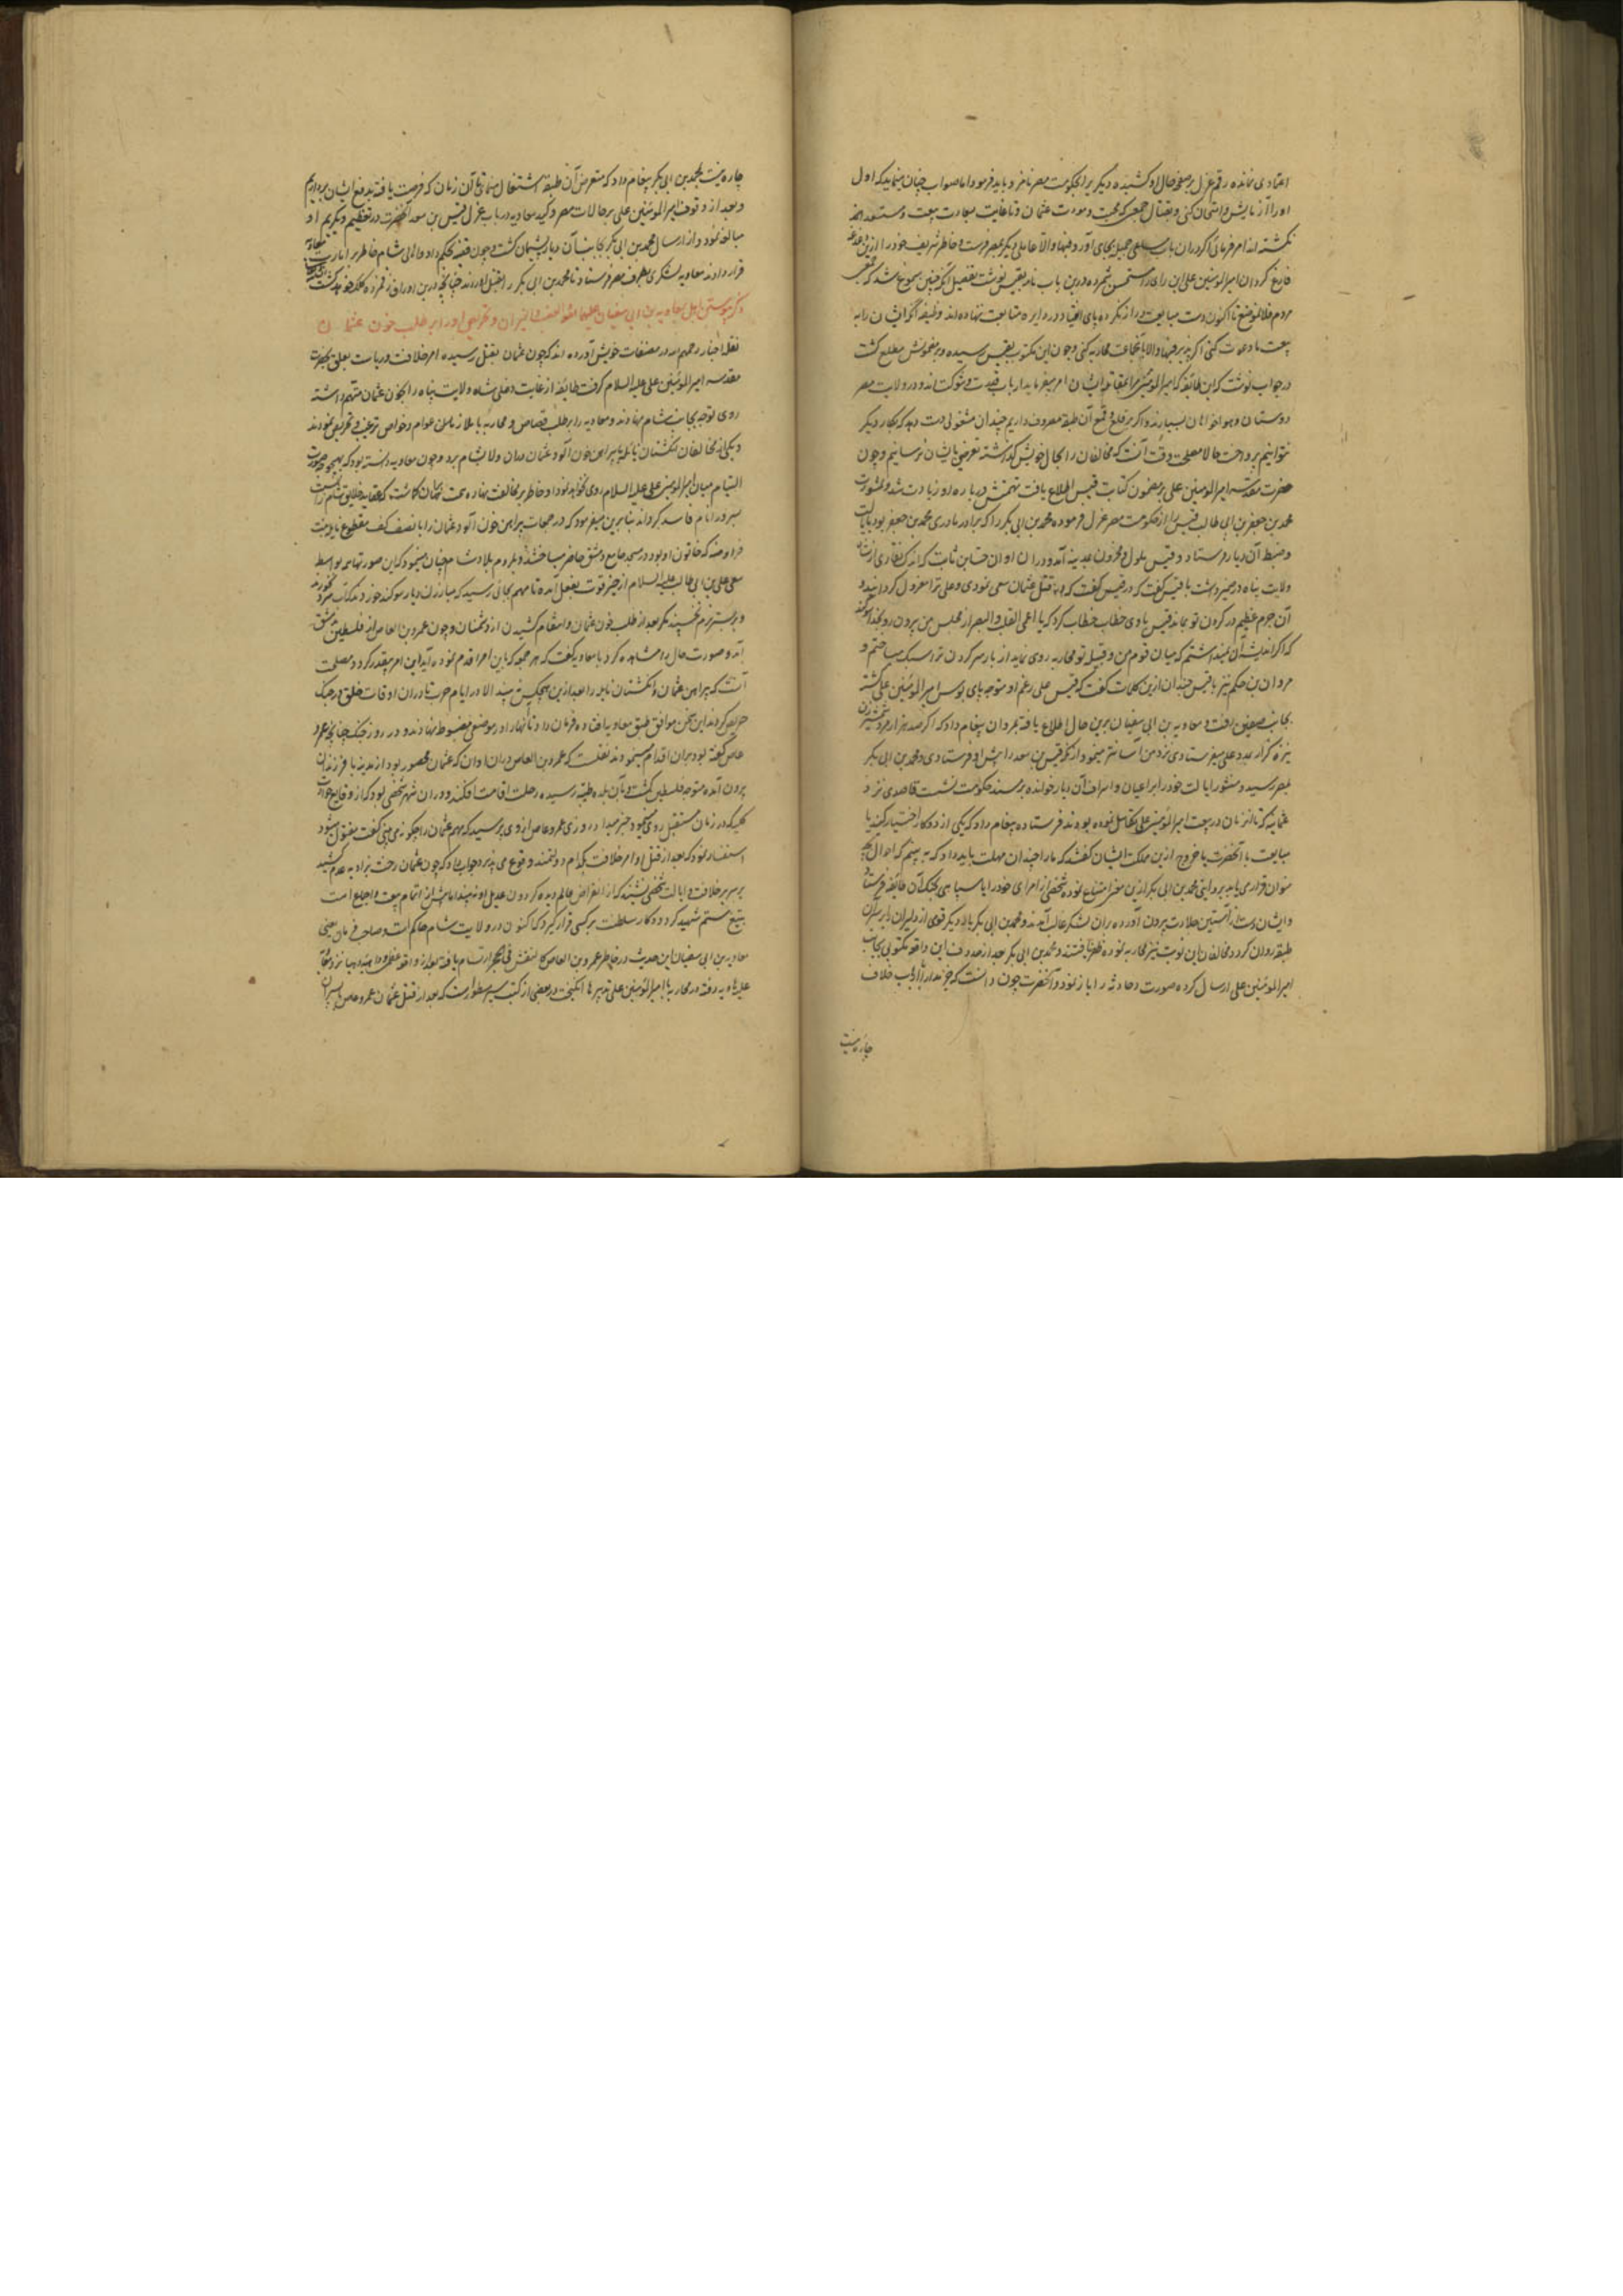 اعتمادی نمانده رقم عزل بر صفحه حال او کشیده دیگری را بحکومت مصر نامزد باید فرمود اما صواب چنان مینماید که اول
او را آزمایش و امتحان کنی و بقتال جمعی که محبت و مودت عثمان و تا غایت بیعت و مستعد
نگشته‌اند امر فرمائی اگر در آن باب مساعی جمیل بجای آورد فبها و الا عامل دیگر بمصر فرست و خاطر شریف خود را ازین
فارغ گردان امیرالمومنین علی این رای را مستحسن شمرده و درین باب نامه بقیس نوشت تفصیل آنکه چنین بسمع ما رسید که
مردم فلان موضع تا اکنون دست مبایعت دراز نکرده پای انقیاد در دایره متابعت ننهاده‌اند وظیفه آنکه ایشان را به
بیعت ما دعوت کنی اگر بپذیرند فبها و الا با جماعت محاربه کنی و چون این مکتوب بقیس رسید و بر مضمونش مطلع گشت
در جواب نوشت که این طائفه که امیرالمومنین مرا بمقاتله ایشان امر میفرماید ارباب شوکت‌اند و در ولایت مصر
دوستان و هواخواهان بسیار دارند و اگر بر قلع و قمع آن طبقه مصروف داریم چندان مشغولی دست دهد که بکار دیگر
نتوانیم پرداخت حالا مصلحت وقت آنست که مخالفان را بحال خویش گذاشته تعرضی بایشان نرسانیم و چون
حضرت امیرالمومنین علی بر مضمون کتابت قیس اطلاع یافت تهمتش درباره او زیادت شد و بمشورت
محمد بن جعفر بن ابی طالب قیس را از حکومت مصر عزل فرموده محمد بن ابی بکر را که برادر مادری محمد بن جعفر بود بایالت
و ضبط آن دیار فرستاد و قیس ملول و محزون بمدینه آمد و در آن اوان حسان بن ثابت که اندک نقاری از شاه
ولایت پناه در ضمیر داشت با قیس گفت که در قتل عثمان سعی نمودی و علی ترا معزول گردانید و
آن جرم عظیم در گردن تو بماند قیس با وی خطاب کرد که یا اعمی القلب و البصر از مجلس من بیرون رو بخدا سوگند
که اگر اندیشه آن نمیداشتم که میان قوم من و قبیله تو محاربه روی نماید از بار سر گردن ترا سبک میساختم و
مروان بن حکم نیز با قیس چندان ازین کلمات گفت که قیس علی رغم او متوجه پای بوس امیرالمومنین علی گشته
بجانب صفین رفت و معاویه بن ابی سفیان برین حال اطلاع یافته بمروان پیغام داد که اگر صد هزار مرد شمشیرزن
نیزه گزار بمدد علی میفرستادی نزد من آسانتر مینمود از آنکه قیس بن سعد را پیش او فرستادی و محمد بن ابی بکر
بمصر رسید و منشور ایالت خود را بر اعیان و اشراف آن دیار خوانده بر مسند حکومت نشست قاصدی نزد
عثمانیه که تا آن زمان در بیعت امیرالمومنین علی تکاهل نموده بودند فرستاده پیغام داد که یکی از دو کار اختیار کنید یا
مبایعت با آنحضرت یا خروج ازین مملکت ایشان گفتند که ما را چندان مهلت باید داد که به بینیم که احوال
قراری یابد محمد بن ابی بکر ازین سخن امتناع نموده شخصی از امرای خود را با سپاهی بجنگ آن طائفه فرستاد
و ایشان دست از آستین جلادت بیرون آورده بر آن لشکر غالب آمدند و محمد بن ابی بکر بار دیگر قومی از دلیران را بر سر آن
طبقه روان کرد و مخالفان این نوبت نیز محاربه نموده ظفر یافتند و محمد بن ابی بکر بعد از حدوث این واقعه مکتوبی بجانب
امیرالمومنین علی ارسال کرده صورت حادثه را باز نمود و آنحضرت چون دانست که جز مدارا با ارباب خلاف
چاره نیست
چاره نیست بمحمد بن ابی بکر پیغام داد که متعرض آن طبقه اشتغال منمای تا آن زمان که فرصت یافته بدفع ایشان پردازیم
و بعد از وقوف امیرالمومنین علی بر حالات مصر و کید معاویه در باب عزل قیس بن سعد آنحضرت در تعظیم و تکریم او
مبالغه نمود و از ارسال محمد بن ابی بکر بجانب آن دیار پشیمان گشت و چون قضیه تحکیم داد و اهالی شام خاطر بر امارت معاویه
قرار دادند معاویه لشکری بطرف مصر فرستاد تا محمد بن ابی بکر را بقتل آوردند چنانچه درین اوراق
ذکر پیوستن اهل معاویه بن ابی سفیان علیهما و تحریض او را بر طلب خون عثمان
نقله اخبار رحمهم الله در مصنفات خویش آورده‌اند که چون عثمان بقتل رسیده امر خلافت و ریاست تعلق بحضرت
مقدسه امیرالمومنین علی علیه السلام گرفت طائفه از غایت دغلی شاه ولایت پناه را بخون عثمان متهم داشته
روی توجه بجانب شام نهادند و معاویه را بر طلب قصاص و محاربه با ملازمان عوام و خواص ترغیب و تحریض نمودند
و یکی از مخالفان انگشتان نائله با پیراهن خون آلود عثمان بدان ولایت شام برد و چون معاویه دانسته بود که بهیچ وجه صورت
التیام میان امیرالمومنین علی علیه السلام روی نخواهد نمود او خاطر بر مخالفت نهاده همت بر آن گماشت که عقاید خلایق شام را نسبت
بسرور انام فاسد گرداند بنابرین میفرمود که در جمعات پیراهن خون آلود عثمان را با نصف کف مقطوع نائله بنت
فرافصه که خاتون او بود در مسجد جامع دمشق حاضر میساختند و بمردم بلاد شام چنان مینمود که این صورتها بواسطه
سعی علی بن ابی طالب علیه السلام از حیز قوت بفعل آمده تا مهم بجائی رسید که مبارزان دیار سوگند خوردند که آب سرد نخورند
و بر بستر نرم نخسپند مگر بعد از طلب خون عثمان و انتقام کشیدن از دشمنان و چون عمرو بن العاص از فلسطین بدمشق
آمد و صورت حال را مشاهده کرد با معاویه گفت که هر جمعه که باین امر اقدام نموده آید این امر مقدر گردد و مصلحت
آنست که پیراهن عثمان و انگشتان نائله را بعد ازین هیچکس نه بیند الا در ایام حرب تا در آن اوقات خلق در جنگ
حریص گردند این سخن موافق طبع معاویه افتاده فرمان داد تا آنها را در موضعی مضبوط نهادند و در روز جنگ چنانچه عمرو
عاص گفته بود بر آن اقدام مینمودند نقلست که عمرو بن العاص در آن اوان که عثمان محصور بود از مدینه با فرزندان
بیرون آمده متوجه فلسطین گشت و بآن بلده طیبه رسیده رحل اقامت افکند و در آن شهر شخصی بود که از وقایع حوادث
که در زمان مستقبل روی مینمود خبر میداد روزی عمرو عاص از وی پرسید که مهم عثمان را چگونه می بینی گفت مقتول میشود
استفسار نمود که بعد از قتل او امر خلافت بکدام دولتمند وقوع می پذیرد جواب داد که چون عثمان رخت بزاویه عدم کشید
بر سریر خلافت و ایالت شخصی نشیند که از انقراض عالم دیده گردون عدیل او نه بیند اما پیش از اتمام بیعت و اجماع امت
بتیغ ستم شهید گردد و کار سلطنت بر کسی قرار گیرد که اکنون در ولایت شام حاکم است و صاحب فرمان یعنی
معاویه بن ابی سفیان این حدیث در خاطر عمرو بن العاص کالنقش فی الحجر ارتسام یافته بعد از واقعه عثمان نزد معاویه
علیه الهاویه رفته در محاربه با امیرالمومنین علی تدبیرها انگیخت و در بعضی از کتب سیر مسطور است که بعد از قتل عثمان عمرو عاص با پسران